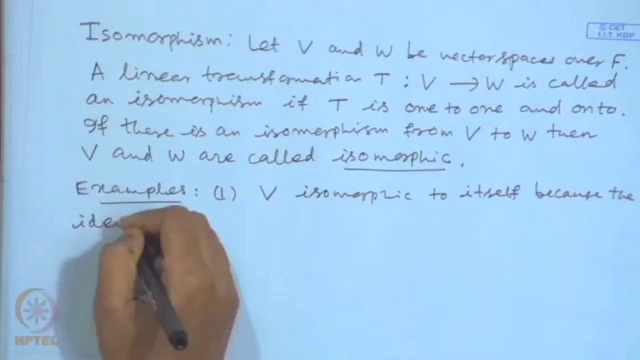 © CET
I.I.T. KGP
Isomorphism: Let V and W be vector spaces over F.
A linear transformation T : V → W is called
an isomorphism if T is one to one and onto.
If there is an isomorphism from V to W then
V and W are called isomorphic.
Examples: (1) V isomorphic to itself because the
ide
NPTEL